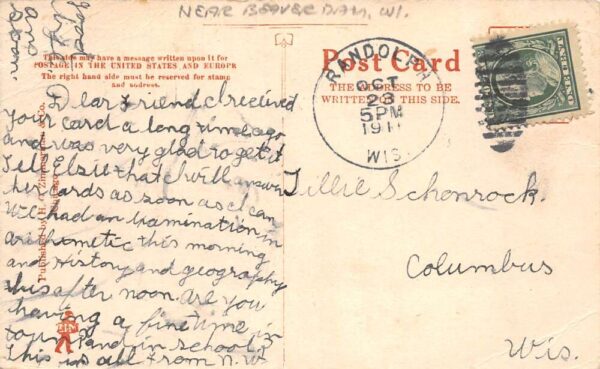 NEAR BEAVER DAM, WI.
This side may have a message written upon it for
POSTAGE IN THE UNITED STATES AND EUROPE
The right hand side must be reserved for stamp
and address.
Post Card
THE ADDRESS TO BE
WRITTEN ON THIS SIDE.
RANDOLPH
OCT
23
5 PM
1911
WIS.
Dear Friend I received
your card a long time ago
and was very glad to get it
Tell Elsie that I will answer
her cards as soon as I can
We had an Examination in
arithmetic this morning
and History and geography
this after noon. Are you
having a fine time in
town and in school
This is all from N. W.
Tillie Schonrock.
Columbus
Wis.
Published by H. G. Zimmerman & Co.
ONE CENT